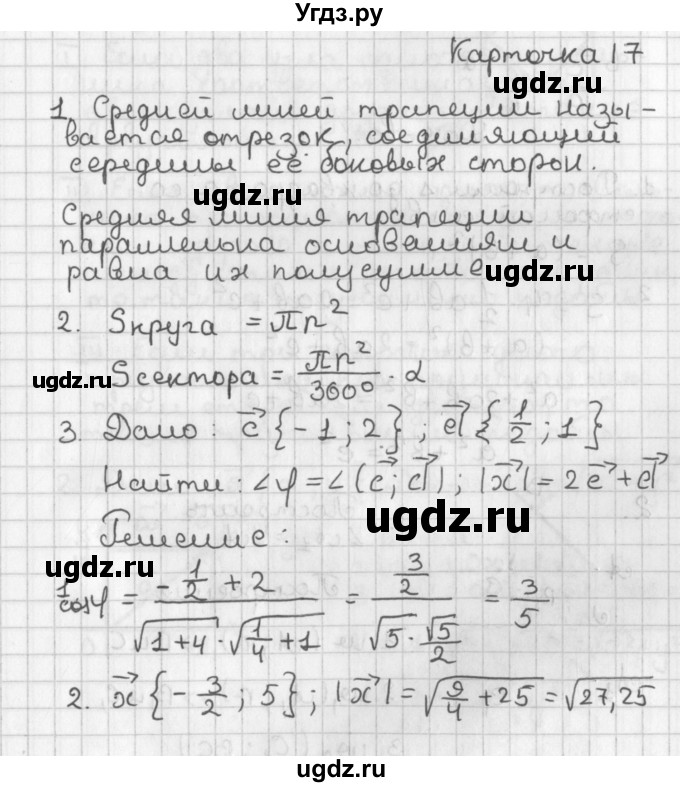 Угдз.ру
Карточка 17
ugdz.ru
1. Средней линией трапеции назы-
вается отрезок, соединяющий
середины её боковых сторон.
ugdz.ru
Средняя линия трапеции
параллельна основаниям и
равна их полусумме
ugdz.ru
2. Sкруга = πr²
ugdz.ru Sсектора = πr²/360° · α
ugdz.ru
3. Дано: c⃗ {-1; 2}; d⃗ {1/2; 1}
Найти: ∠φ = ∠(c⃗; d⃗); |x⃗| = 2c⃗ + d⃗
ugdz.ru
Решение:
ugdz.ru
1. cosφ = (-1/2 + 2)/(√(1+4) · √(1/4 + 1)) = (3/2)/(√5 · √5/2) = 3/5
2. x⃗ {-3/2; 5}; |x⃗| = √(9/4 + 25) = √27,25
ugdz.ru